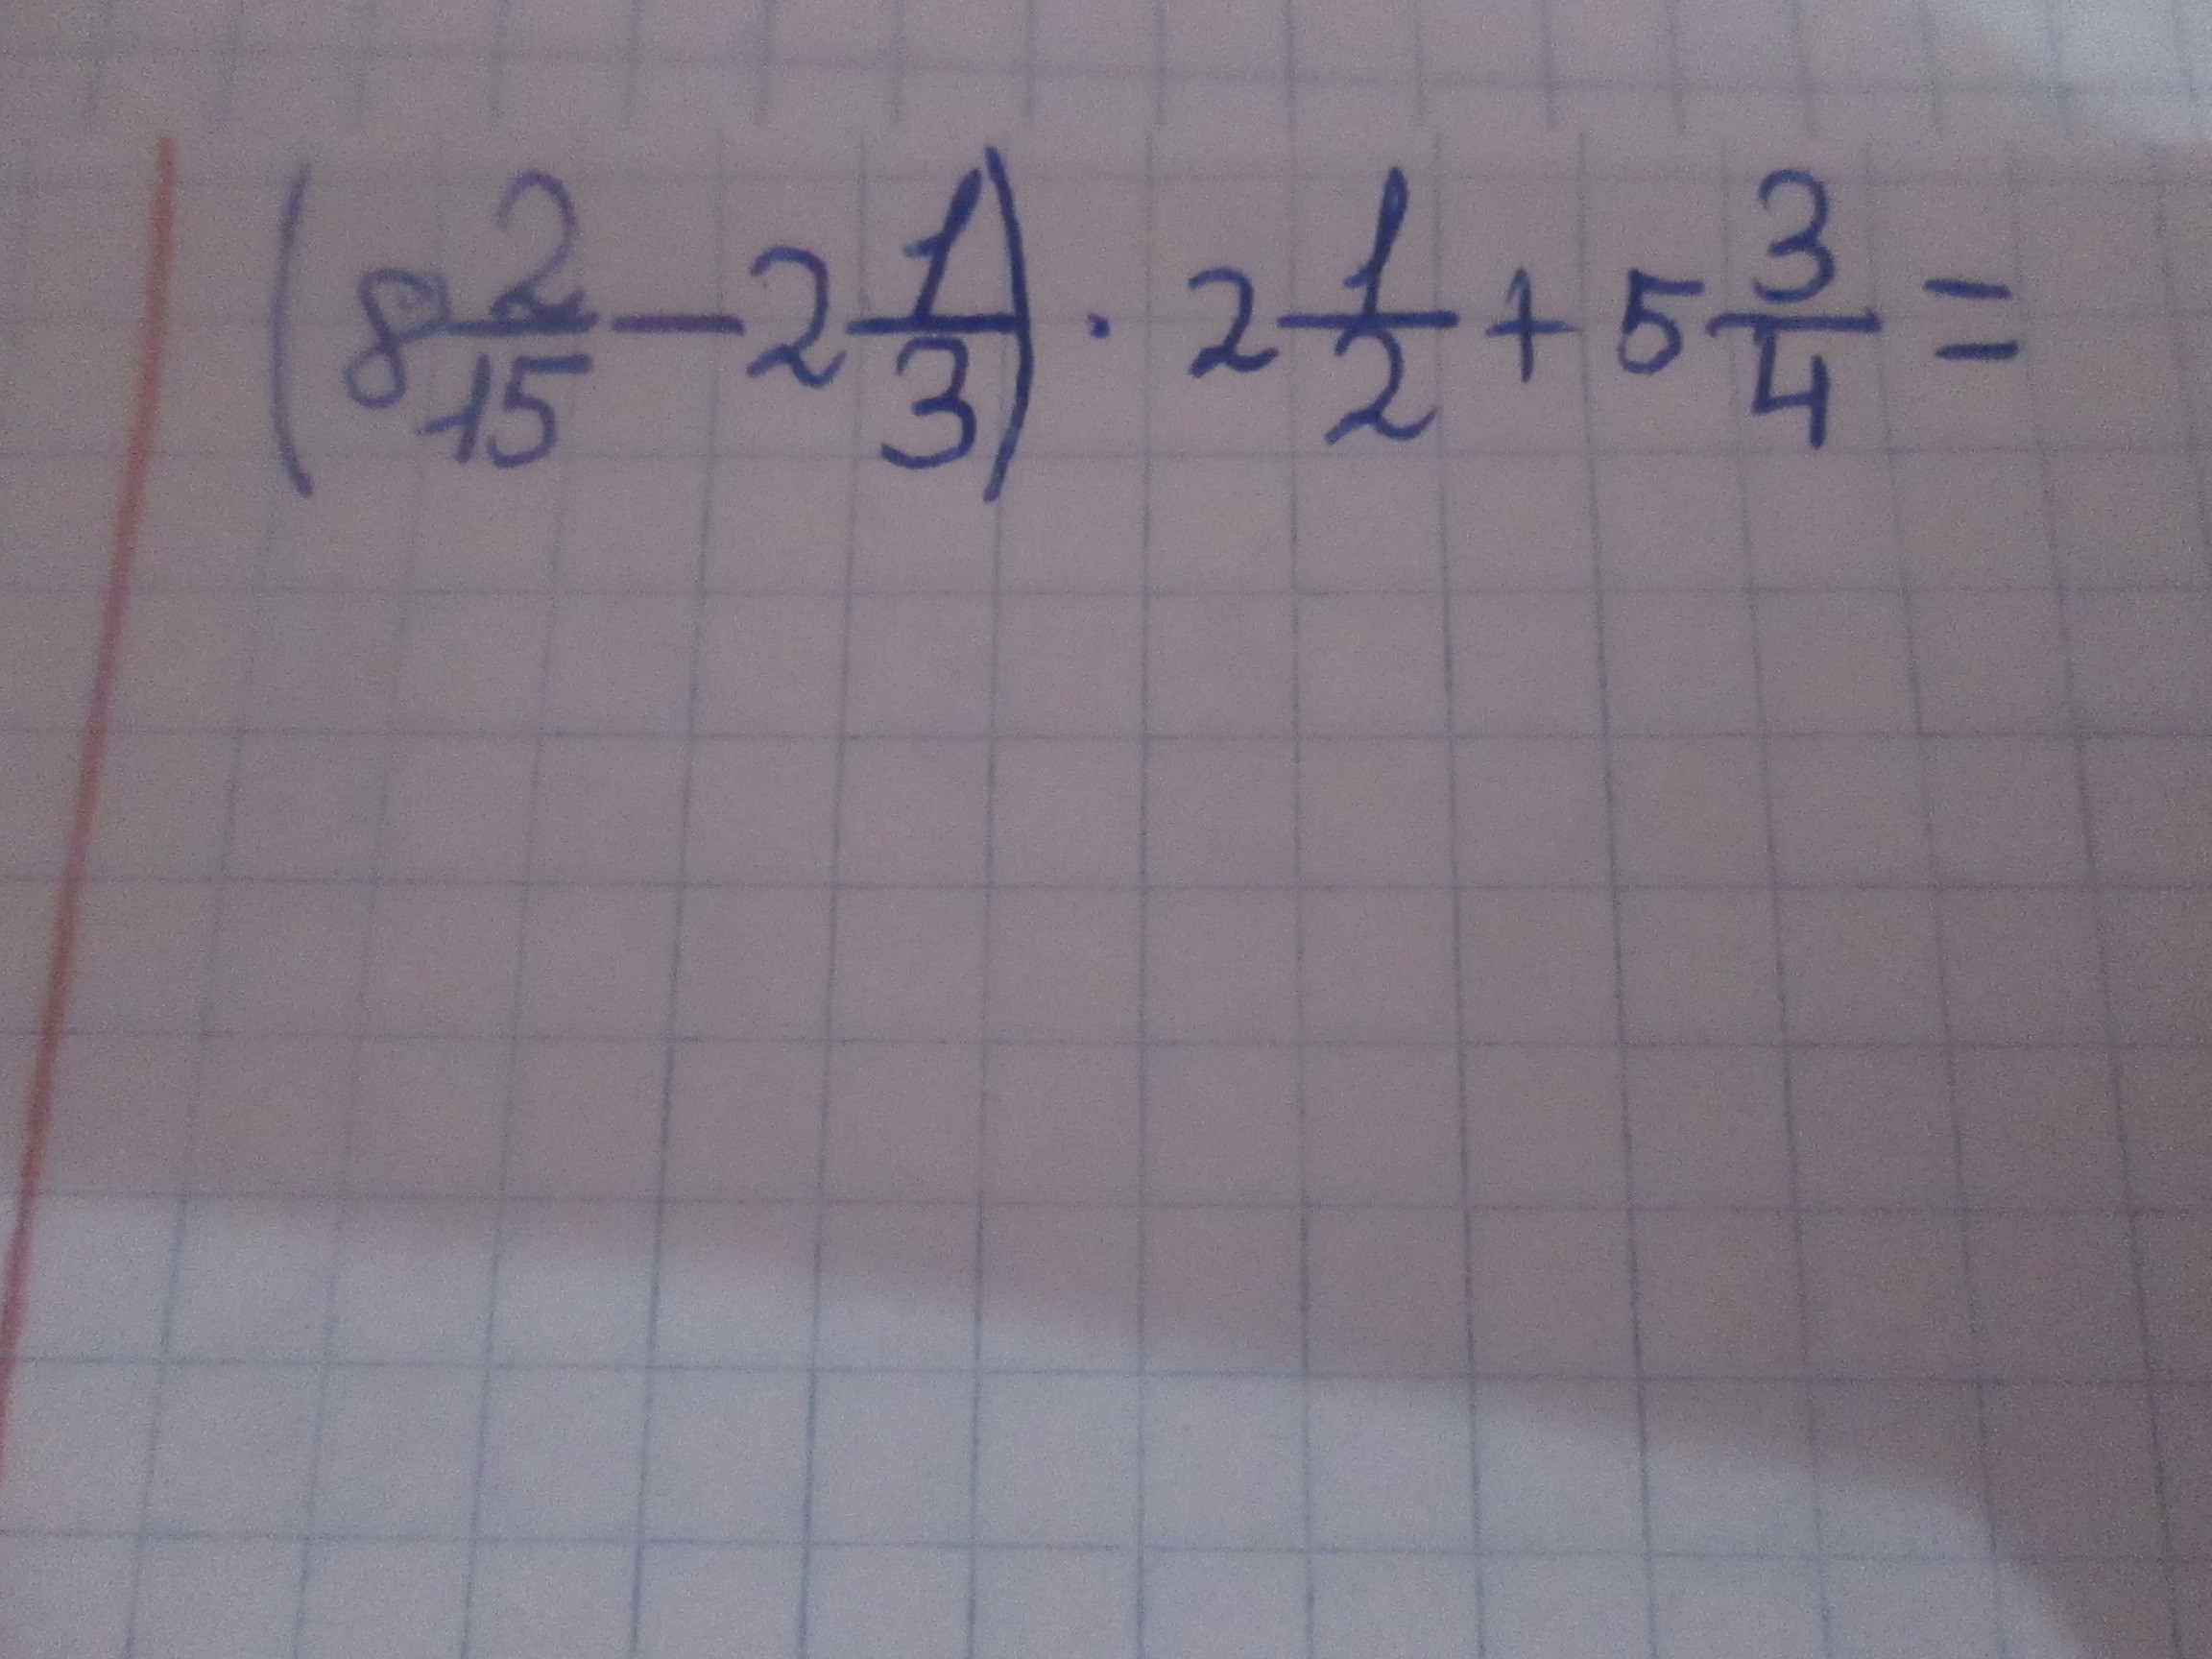 (8 2/15 − 2 1/3) · 2 1/2 + 5 3/4 =